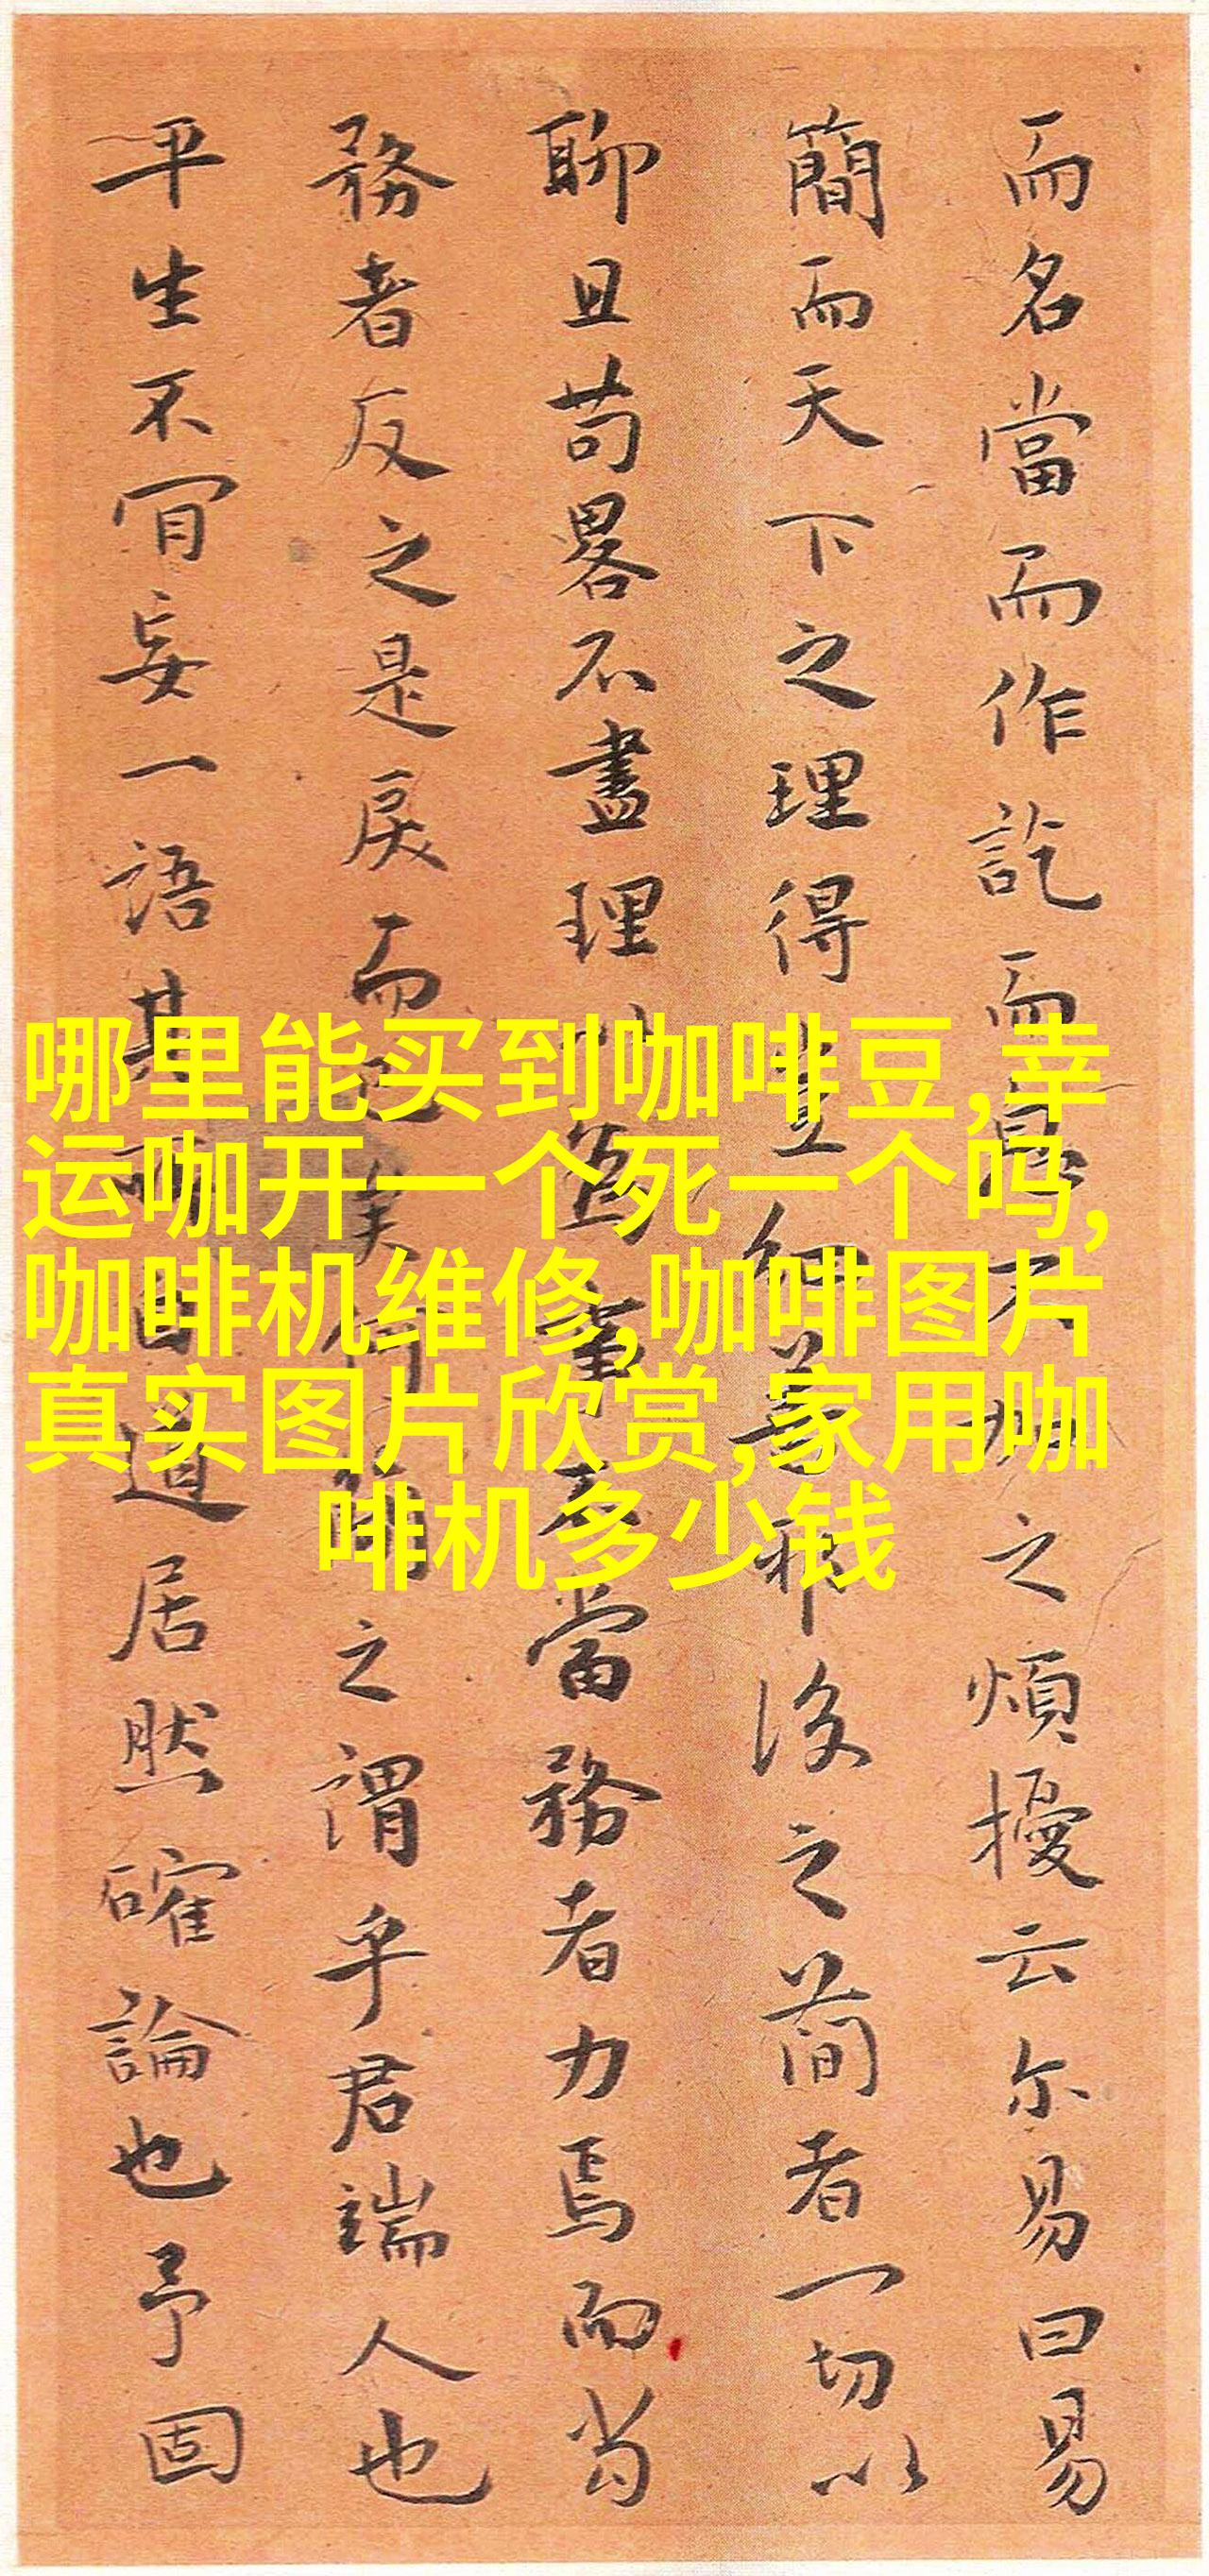 而名當而作訖而是不加之煩擾云尔易曰易
簡而天下之理得豈細善耶後之簡者一切以
聊且苟畧不盡理以為當務者力焉而当
務者反之是戾而之謂乎君端人也
平生不肎妄一語其而曲道居然確論也予固
哪里能买到咖啡豆,幸
运咖开一个死一个吗,
咖啡机维修,咖啡图片
真实图片欣赏,家用咖
啡机多少钱